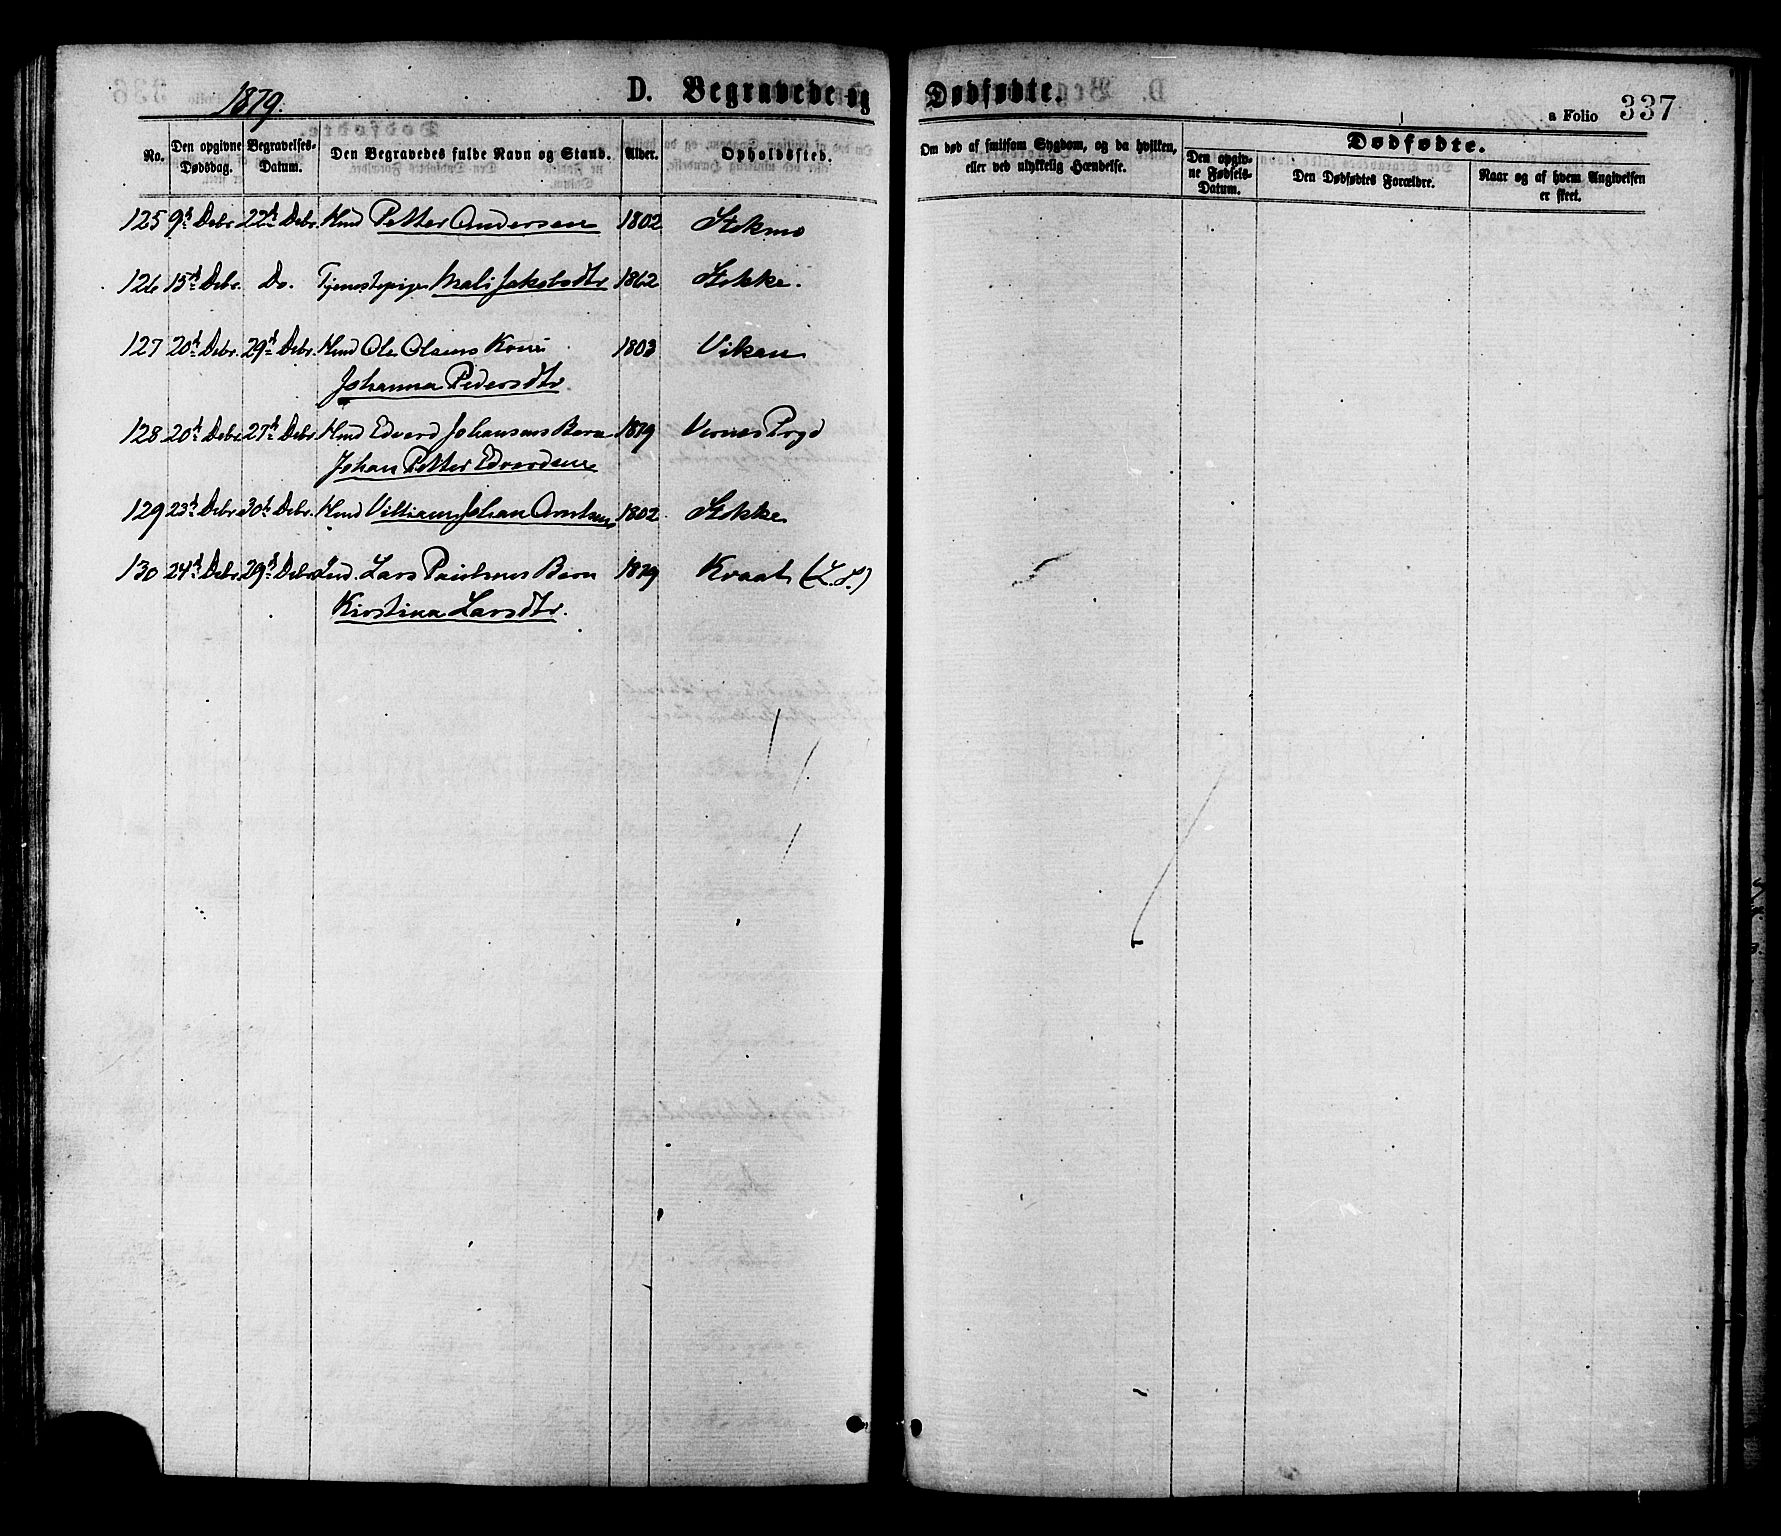 1879.
D. Begravede og Dødfødte.
a Folio 337
No.
Den opgivne Dødsdag.
Begravelses-Datum.
Den Begravedes fulde Navn og Stand.
Alder.
Opholdssted.
Om død af smitsom Sygdom, og da hvilken, eller ved ulykkelig Hændelse.
Dødfødte.
Den opgivne Fødsels-Datum.
Den Dødfødtes Forældre.
Naar og af hvem Angivelsen er skeet.
125 9d Debr. 22d Debr. Hmd Petter Andersen 1802 Stokmo
126 15d Debr. Do. Tjenestepige Mali Jakobsdtr 1862 Stokke.
127 20d Debr. 29d Debr. Hmd Ole Olsens Kone 1803 Vikan
Johanna Pedersdtr.
128 20d Debr. 27d Debr. Hmd Edvard Johansens Barn 1879
Johan Petter Edvardsen
129 23d Debr. 30d Debr. Hmd Villiam Johan Arntsen 1802 Stokke
130 24d Debr. 29d Debr. Ind. Lars Paulsens Barn 1879 (L.S.)
Kirstina Larsdtr.